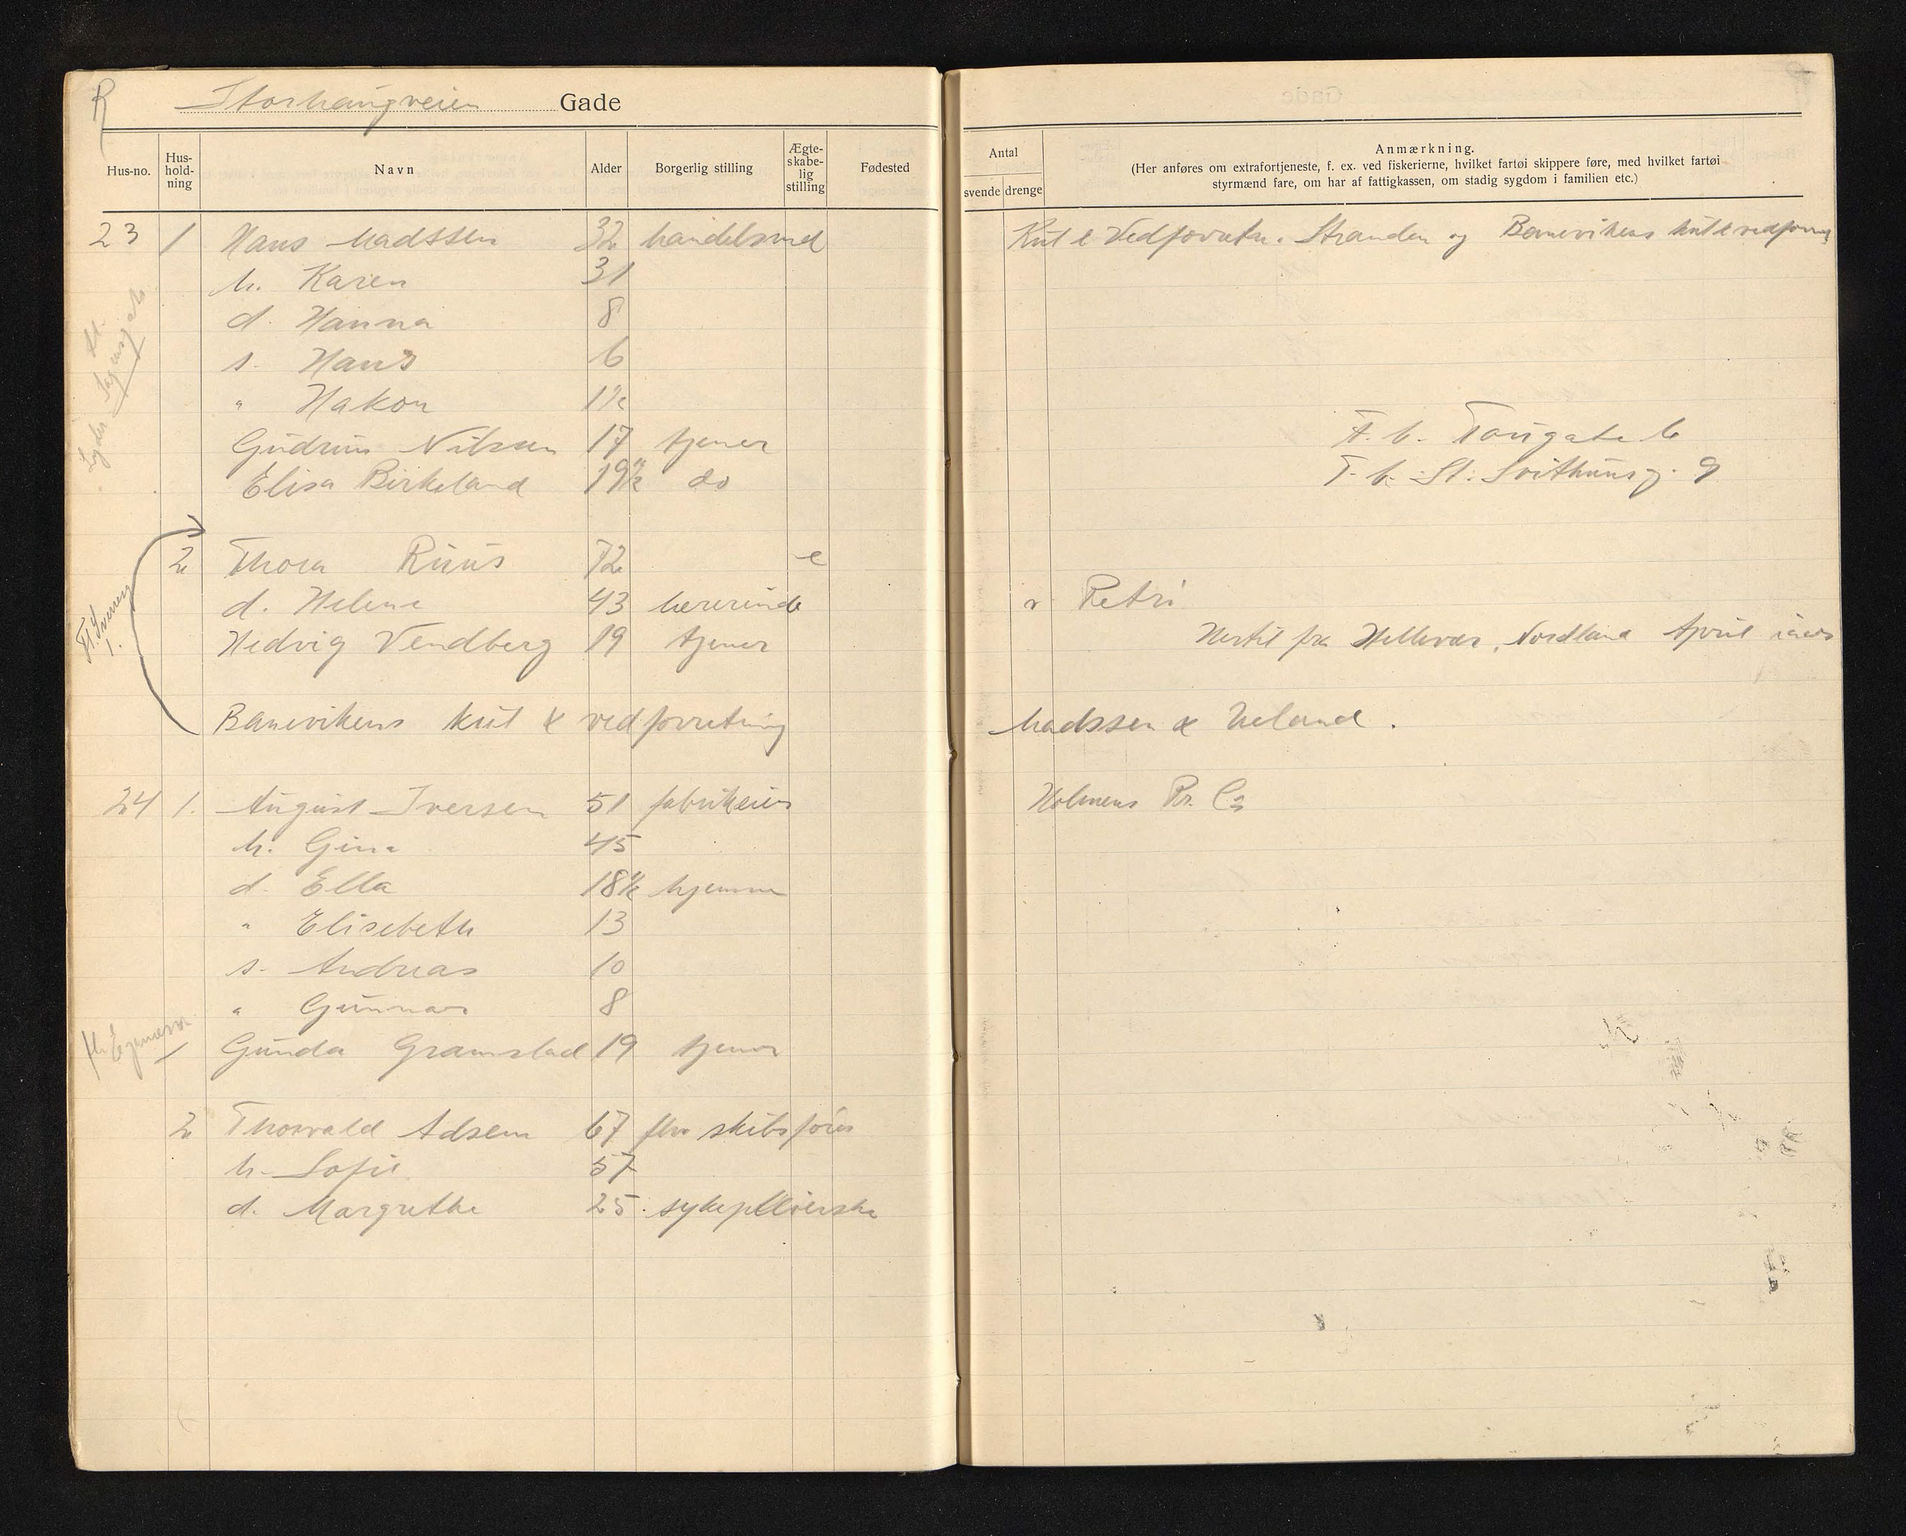 R Storhaugveien Gade
Hus-no. Hus-hold-ning Navn Alder Borgerlig stilling Ægte-skabe-lig stilling Fødested
Antal svende drenge
Anmærkning.
(Her anføres om extrafortjeneste, f. ex. ved fiskerierne, hvilket fartøi skippere føre, med hvilket fartøi
styrmænd fare, om har af fattigkassen, om stadig sygdom i familien etc.)
23 1 Hans Madssen 32 handelsmd Kul & Vedforretn. Stranden og Banevikens kul & vedforretn
h. Karen 31
d. Hanna 8
s. Hans 6
" Hakon 1½
Gudrun Nilsen 17 tjener F. b. Tougate 6
Elisa Birkeland 19½ do F. b. St. Svithunsg. 9
2 Thora Ruus 72 e
d. Helene 43 lærerinde v Petri
Hedvig Vendberg 19 tjener Hertil fra Hellevær, Nordland April iaar
Fl. Sverres
Banevikens kul & ved forretning Madssen & Ueland.
24 1. August Iversen 51 fabrikeier Holmens Pr. Co
h. Gina 45
d. Ella 18½ hjemme
" Elisebeth 13
s. Andreas 10
" Gunnar 8
Gunda Gramstad 19 tjener
2 Thorvald Adsem 67 fhv skibsfører
h. Sofie 57
d. Margrethe 25 sykepleierske